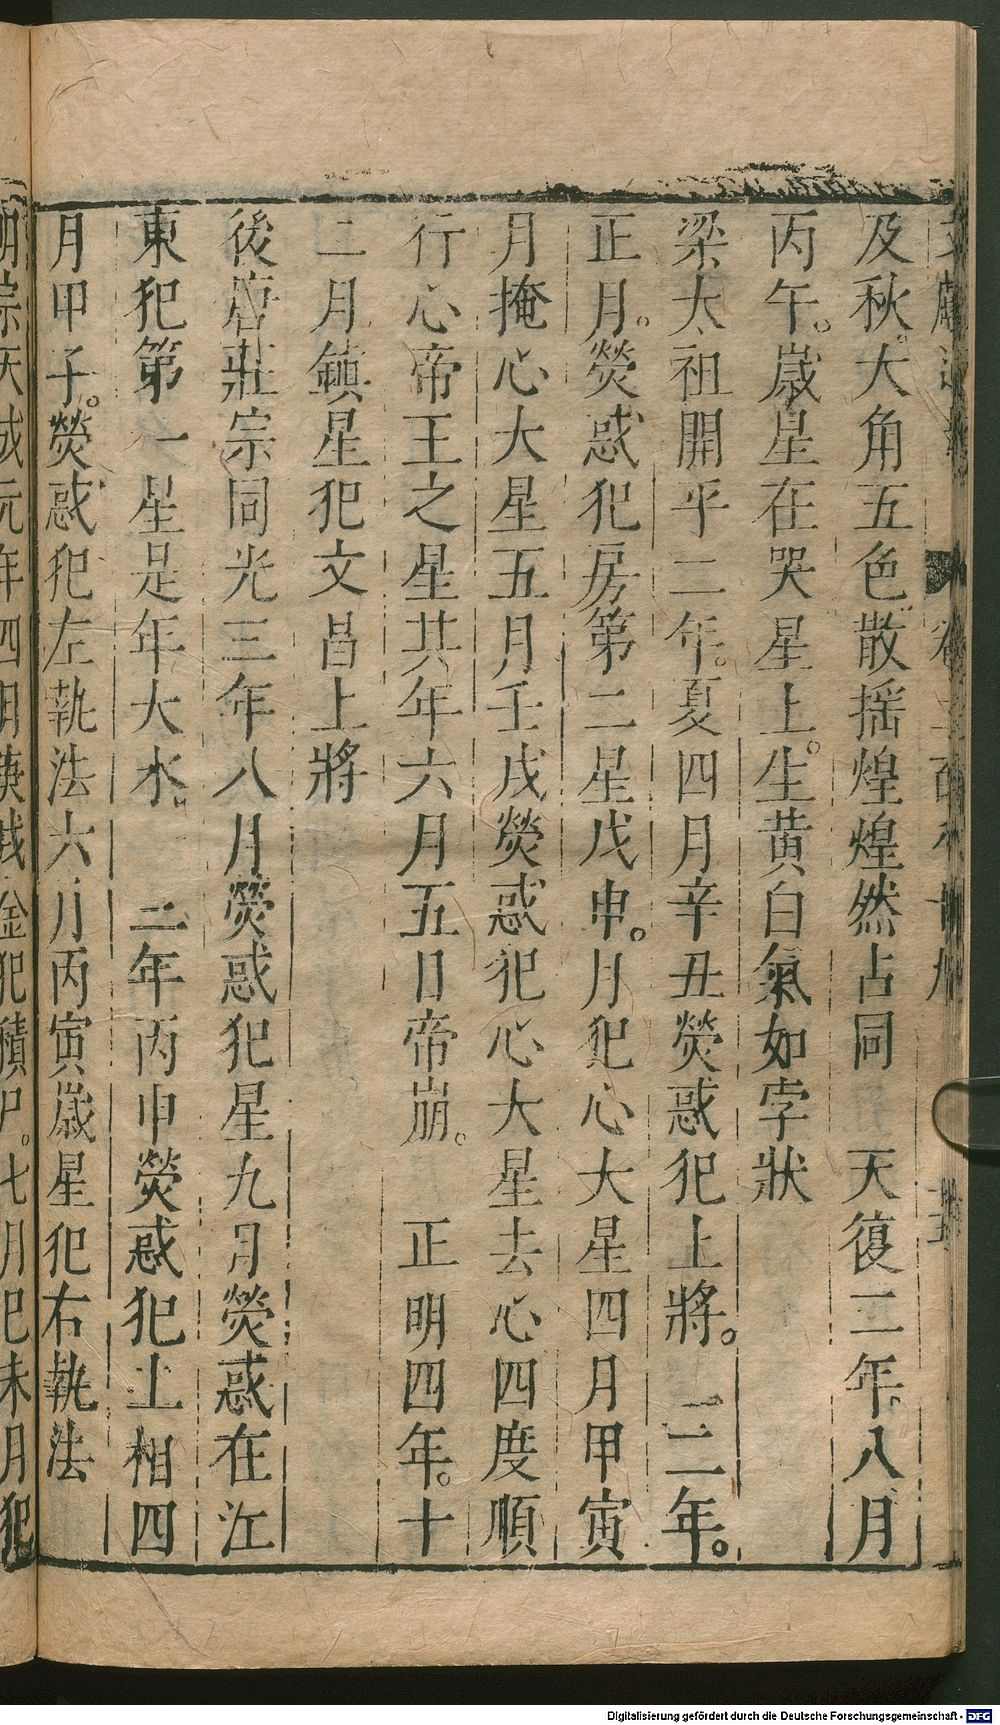 及秋大角五色散搖煌煌然占同　天復二年八月
丙午歲星在哭星上生黃白氣如孛狀
梁太祖開平二年夏四月辛丑熒惑犯上將　二年
正月熒惑犯房第二星戊申月犯心大星四月甲寅
月掩心大星五月壬戌熒惑犯心大星去心四度順
行心帝王之星其年六月五日帝崩　正明四年十
二月鎮星犯文昌上將
後唐莊宗同光三年八月熒惑犯星九月熒惑在江
東犯第一星是年大水　二年丙申熒惑犯上相四
月甲子熒惑犯左執法六月丙寅歲星犯右執法
明宗天成元年四月庚戌金犯積尸七月己未月犯
Digitalisierung gefördert durch die Deutsche Forschungsgemeinschaft - DFG